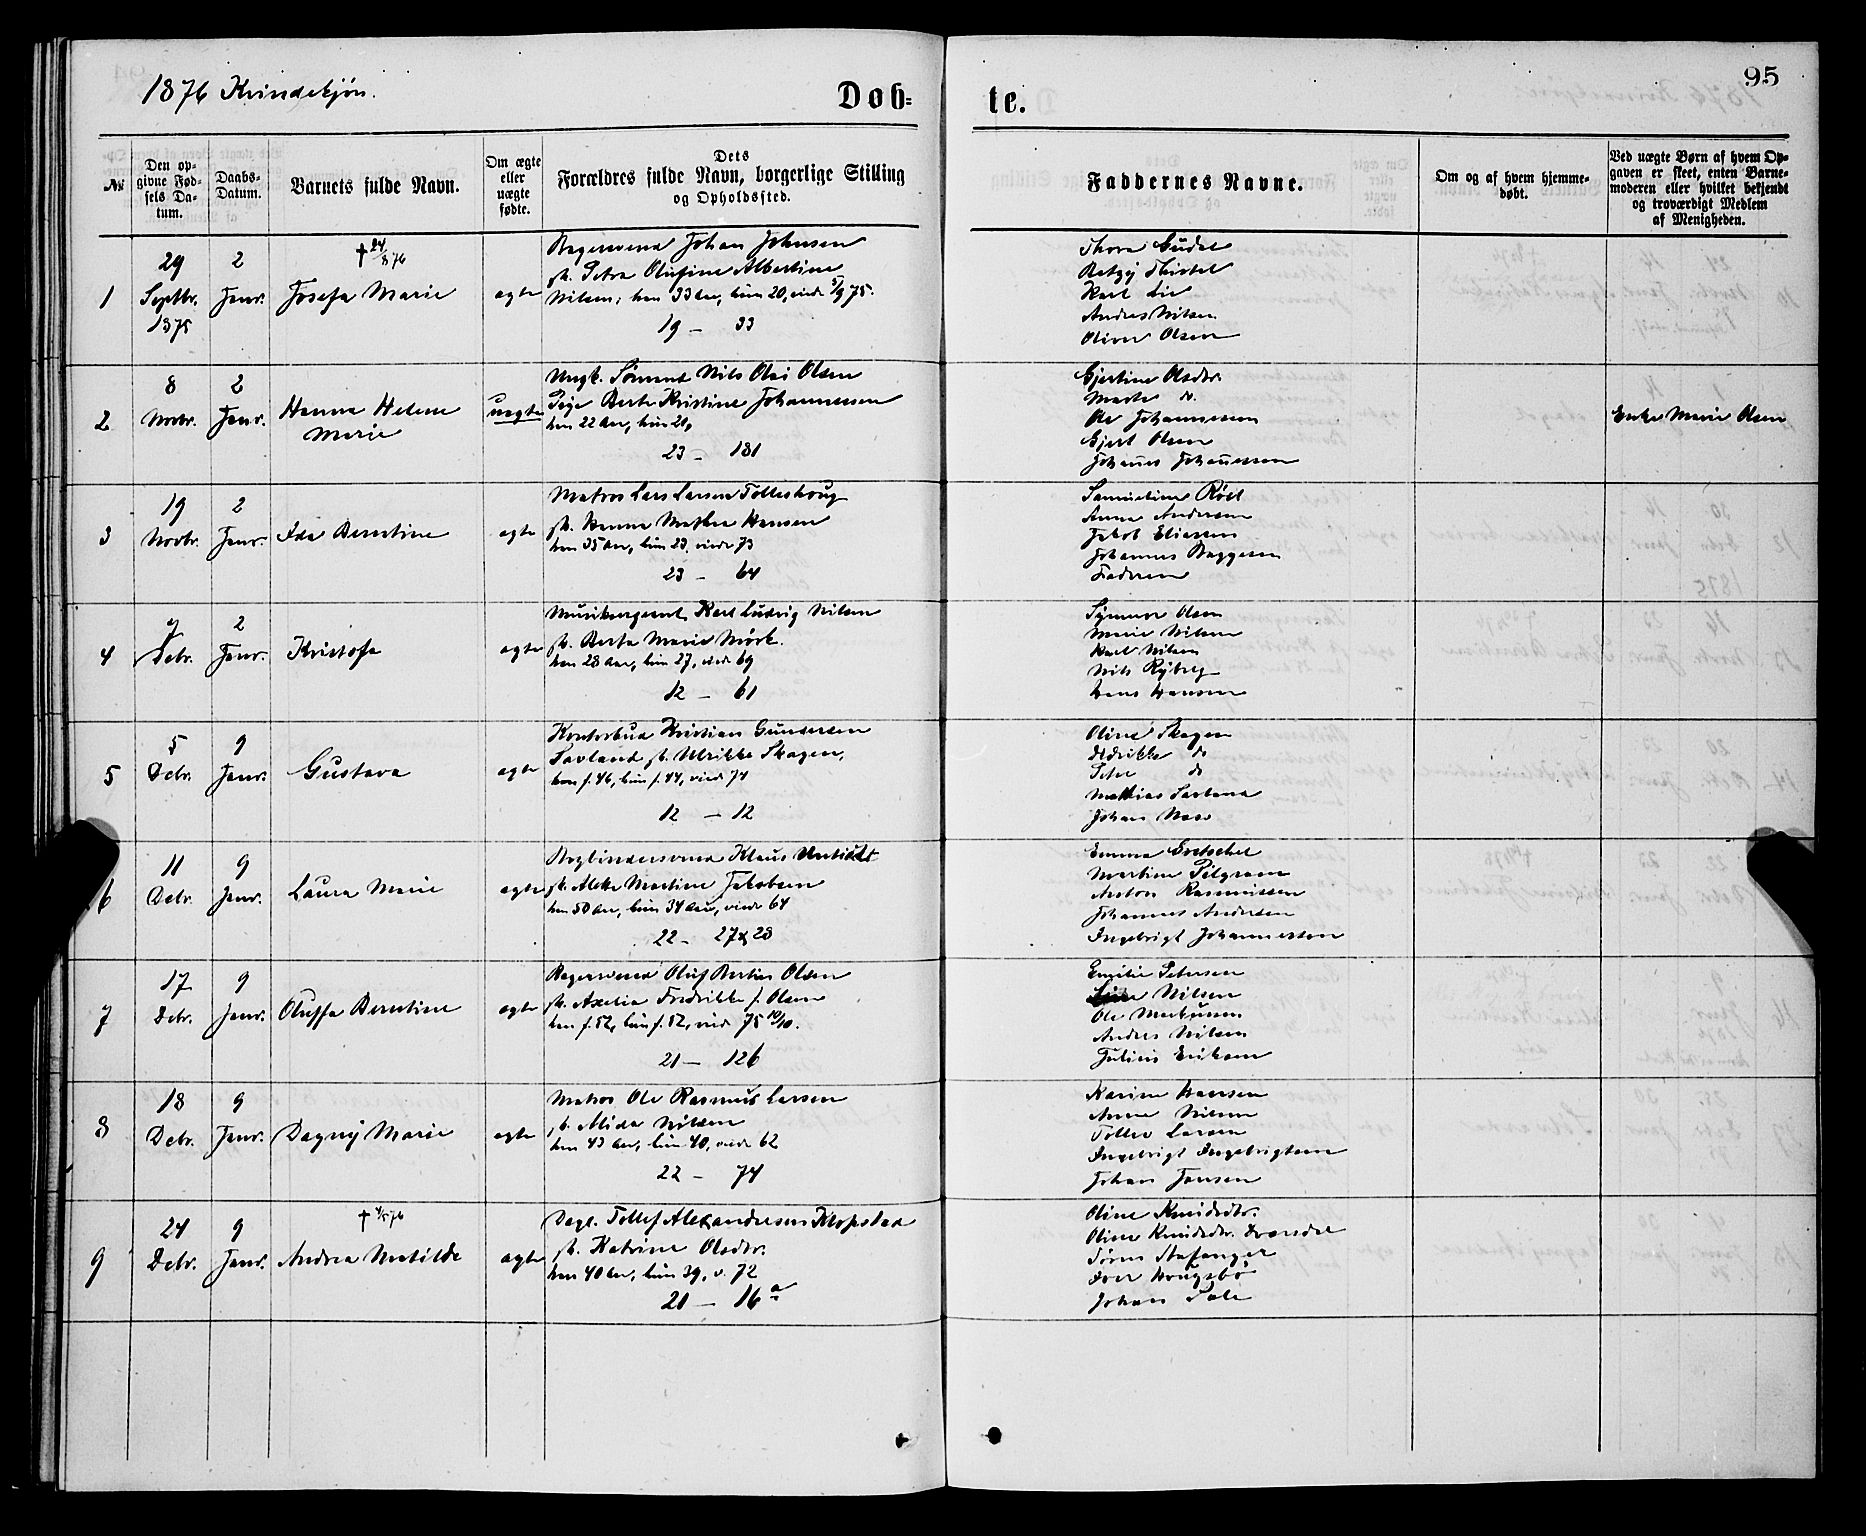 1876 Kvindekjøn.
Døb-
te.
95
№
Den op-
givne Fød-
sels Da-
tum.
Daabs-
Datum.
Barnets fulde Navn.
Om ægte
eller
uægte
fødte.
Dets
Forældres fulde Navn, borgerlige Stilling
og Opholdssted.
Faddernes Navne.
Om og af hvem hjemme-
døbt.
Ved uægte Børn af hvem Op-
gaven er skeet, enten Barne-
moderen eller hvilket bekjendt
og troværdigt Medlem
af Menigheden.
1
29
Septbr.
1875
2
Janr.
† 24/8 76
Josefa Marie
ægte
Bagersvend Johan Johnsen
h. Petra Olufine Albertine
Nilsen; han 33 Aar, hun 20, viede 5/9 75.
19 — 33
Thora Gudal
Betzy Thistel
Karl Lie
Andres Nilsen
Oliver Olsen
2
8
Novbr.
2
Janr.
Hanna Helene
Marie
uægte
Ungk. Sømand Nils Olai Olsen
Pige Berta Kristine Johannessen
han 22 Aar, hun 21,
23 — 181
Gjertine Olsdtr.
Marta do.
Ole Johannessen
Gjert Olsen
Johanes Johanessen
Enke Marie Olsen
3
19
Novbr.
2
Janr.
Ida Berntine
ægte
Matros Lars Larsen Tolleshoug
h. Hanna Mathea Hansen
han 35 Aar, hun 23, viede 73
23 — 64
Samueline Rött
Anna Andersen
Jakob Eliassen
Johannes Baggesen
Faderen
4
2
Debr.
2
Janr.
Kristofa
ægte
Musiksergeant Karl Ludvig Nilsen
h. Berta Marie Mørk
han 28 Aar, hun 27, viede 69
12 — 61
Synneve Olsen
Marie Nilsen
Karl Nilsen
Nils Ryberg
Hans Hansen
5
5
Debr.
9
Janr.
Gustava
ægte
Kontorbud Kristian Gundersen
Savland h. Ulrikke Skagen,
han f. 46, hun f. 44, viede 74
12 — 12
Oline Skagen
Fredrikke do
Peter do
Mathias Savland
Johan
6
11
Debr.
9
Janr.
Laura Marie
ægte
Bogbindersvend Klaus
h. Aletta Martine Jakobsen
han 50 Aar, hun 34 Aar, viede 64
22 — 27 & 28
Emma Gretschel
Martine Pilgram
Anton Rasmussen
Johannes Andersen
Ingebrigt Johannessen
7
17
Debr.
9
Janr.
Oluffa Berntine
ægte
Bagersvend Oluf Bertin Olsen
h. Axelia Fredrikke f. Olsen
han f. 52, hun f. 52, viede 75 10/10.
21 — 126
Emilie Petersen
Nilsen
Ole Markussen
Andres Nilsen
Julius Eriksen
8
18
Debr.
9
Janr.
Dagny Marie
ægte
Matros Ole Rasmus Larsen
h. Alida Nilsen
han 43 Aar, hun 40, viede 62
22 — 74
Karine Hansen
Anna Nilsen
Tollev Larsen
Ingebrigt Ingebrigtsen
Johan Jansen
9
24
Debr.
9
Janr.
† 4/5 76
Andrea Matilde
ægte
Dagl. Tollef Alexandersen Klopstad
h. Katrine Olsdtr.
han 40 Aar, hun 39, v. 72
21 — 16 a
Oline Knudsdtr.
Oline Knudsdtr.
Søren Stafanger
Iver Hougsbø
Johan Dale